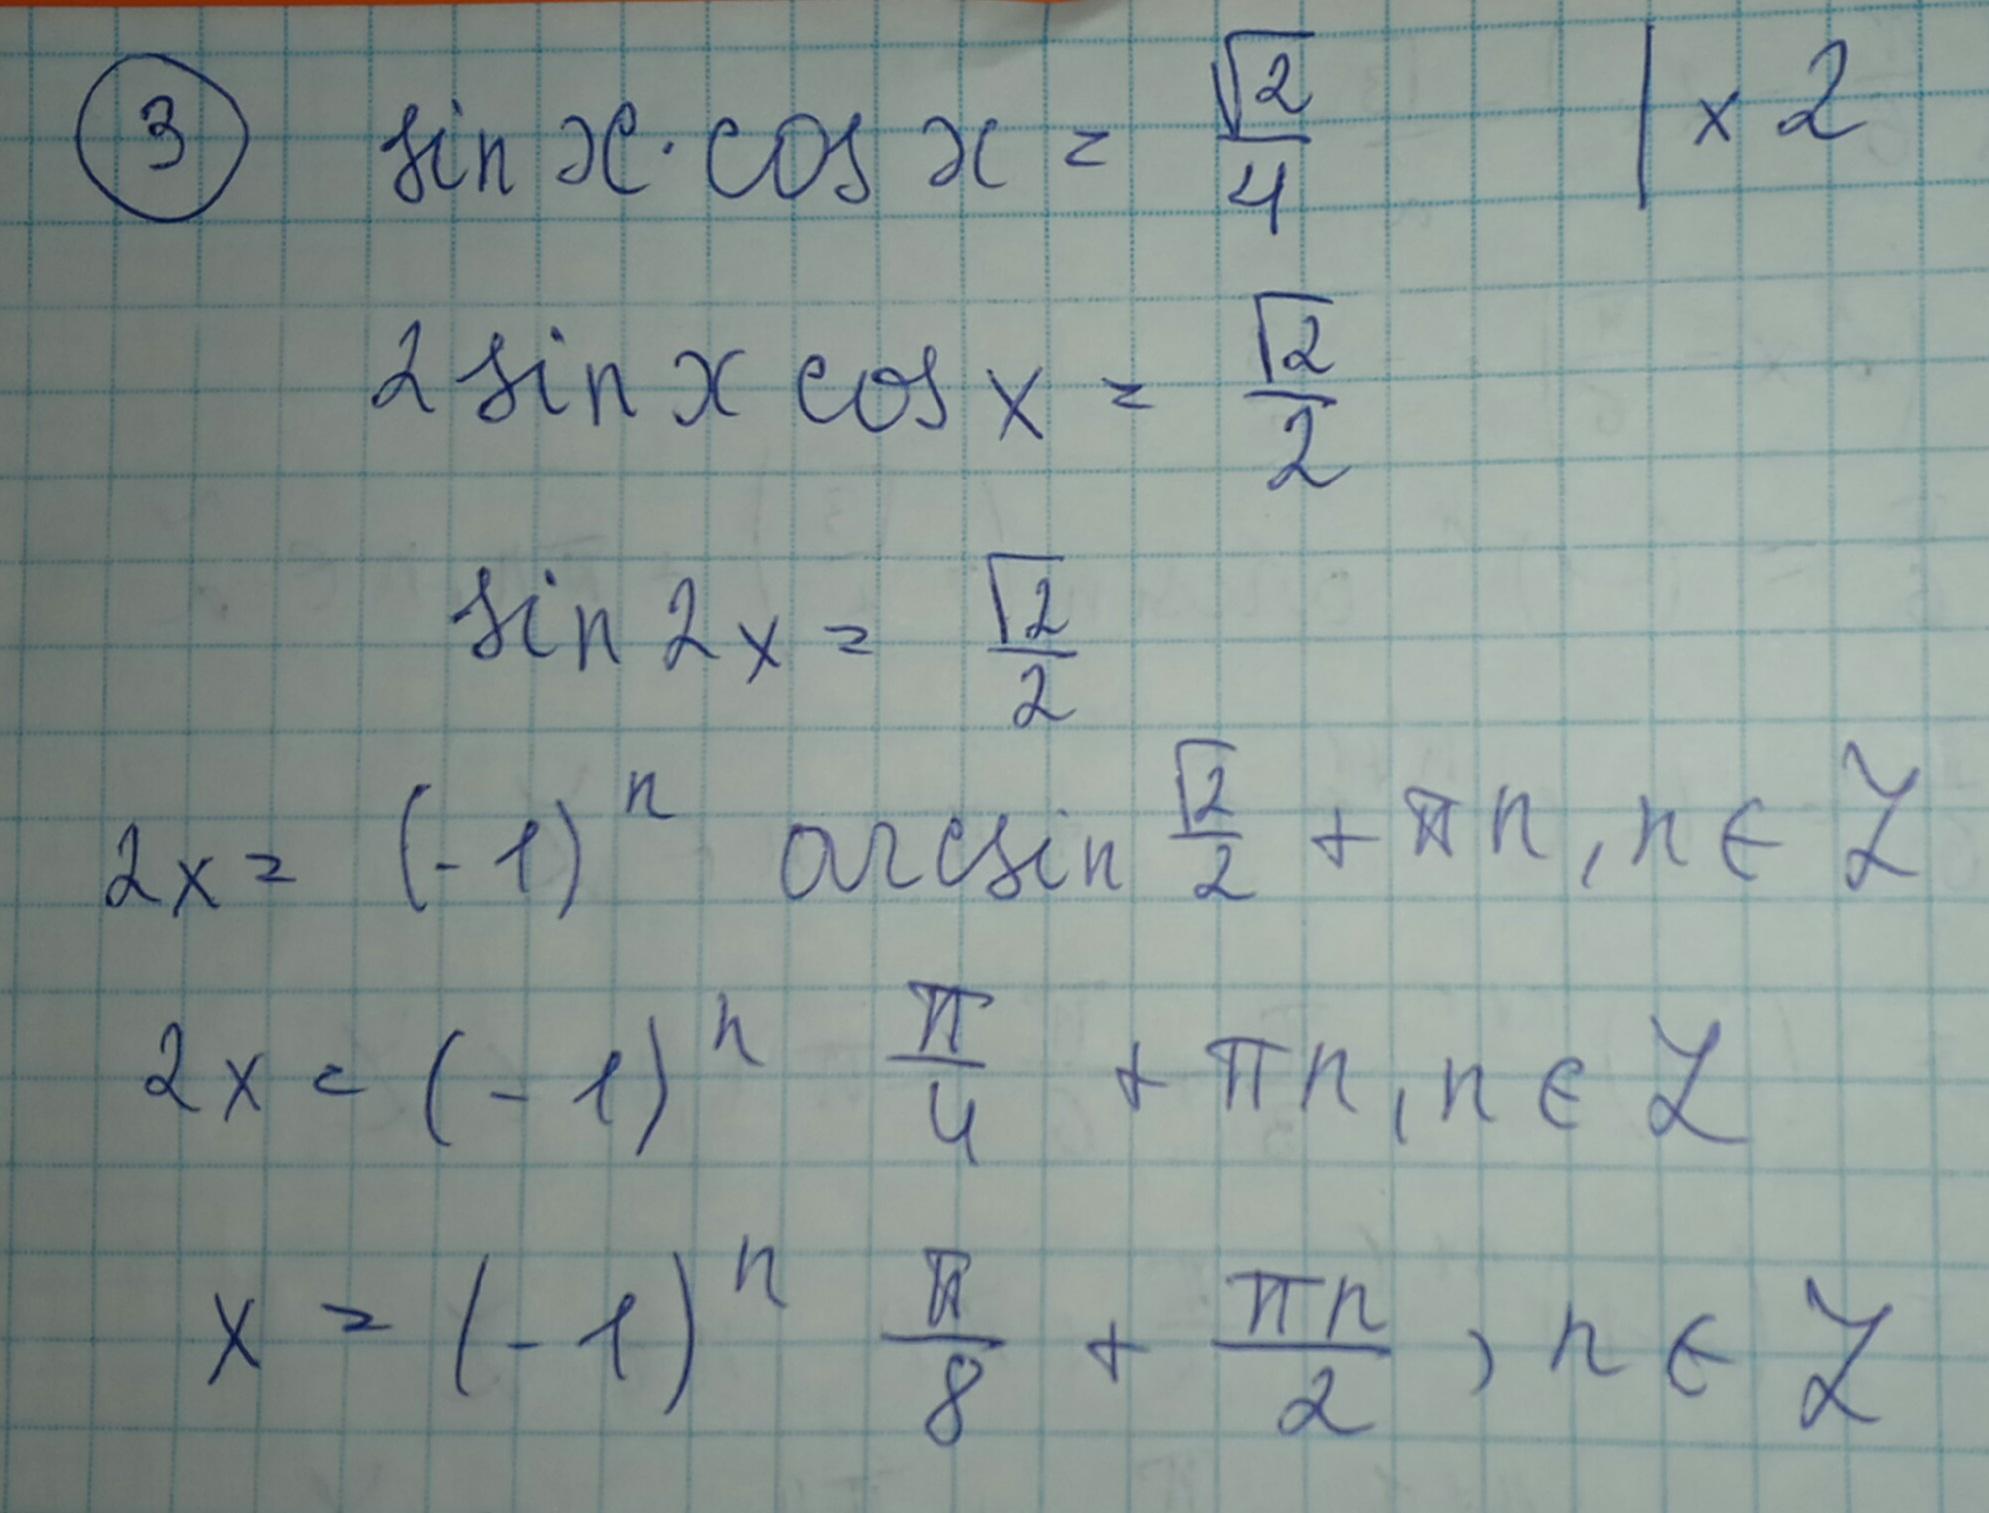 3 sin x · cos x = √2/4 | × 2
2 sin x cos x = √2/2
sin 2x = √2/2
2x = (-1)^n arcsin √2/2 + πn, n ∈ Z
2x = (-1)^n π/4 + πn, n ∈ Z
x = (-1)^n π/8 + πn/2, n ∈ Z